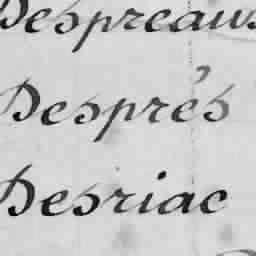 Despreaux
Després
Desriac